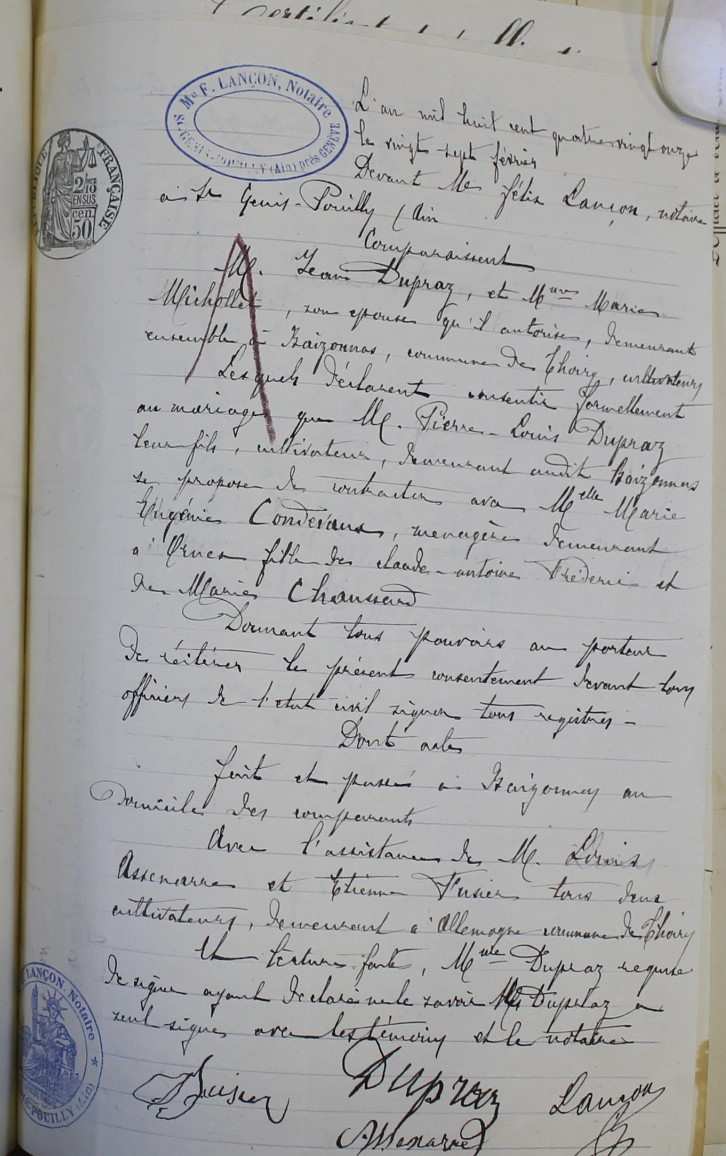 Me F. LANÇON, Notaire
St GENIS-POUILLY (Ain) près GENÈVE
RÉPUBLIQUE FRANÇAISE
2/10
EN SUS
50 cen.
L'an mil huit cent quatre vingt onze
le vingt-sept février
Devant Me Félix Lançon, notaire
à St Genis-Pouilly (Ain
Comparaissent
M. Jean Dupraz, et Mme Marie
Michollet, son épouse qu'il autorise, demeurant
ensemble à Baizonnas, commune de Thoiry, cultivateurs
Lesquels déclarent consentir formellement
au mariage que M. Pierre-Louis Dupraz
leur fils, cultivateur, demeurant audit Baizonnas
se propose de contracter avec Melle Marie
Eugénie Condevaux, ménagère demeurant
à Ornex fille de claude-antoine Frédéric et
de Marie Chaussard
Donnant tous pouvoirs au porteur
de réitérer le présent consentement devant tous
officiers de l'état civil signer tous registres -
Dont acte
fait et passé à Baizonnas au
Domicile des comparants
Avec l'assistance de M. Louis
Assenarre et Etienne Fusier tous deux
cultivateurs, demeurant à Allemogne commune de Thoiry
Et lecture faite, Mme Dupraz requise
de signer ayant déclaré ne le savoir Mr Dupraz a
seul signé avec les témoins et le notaire
LANÇON, Notaire
POUILLY (Ain)
Fusier Dupraz Lançon
Assenarre